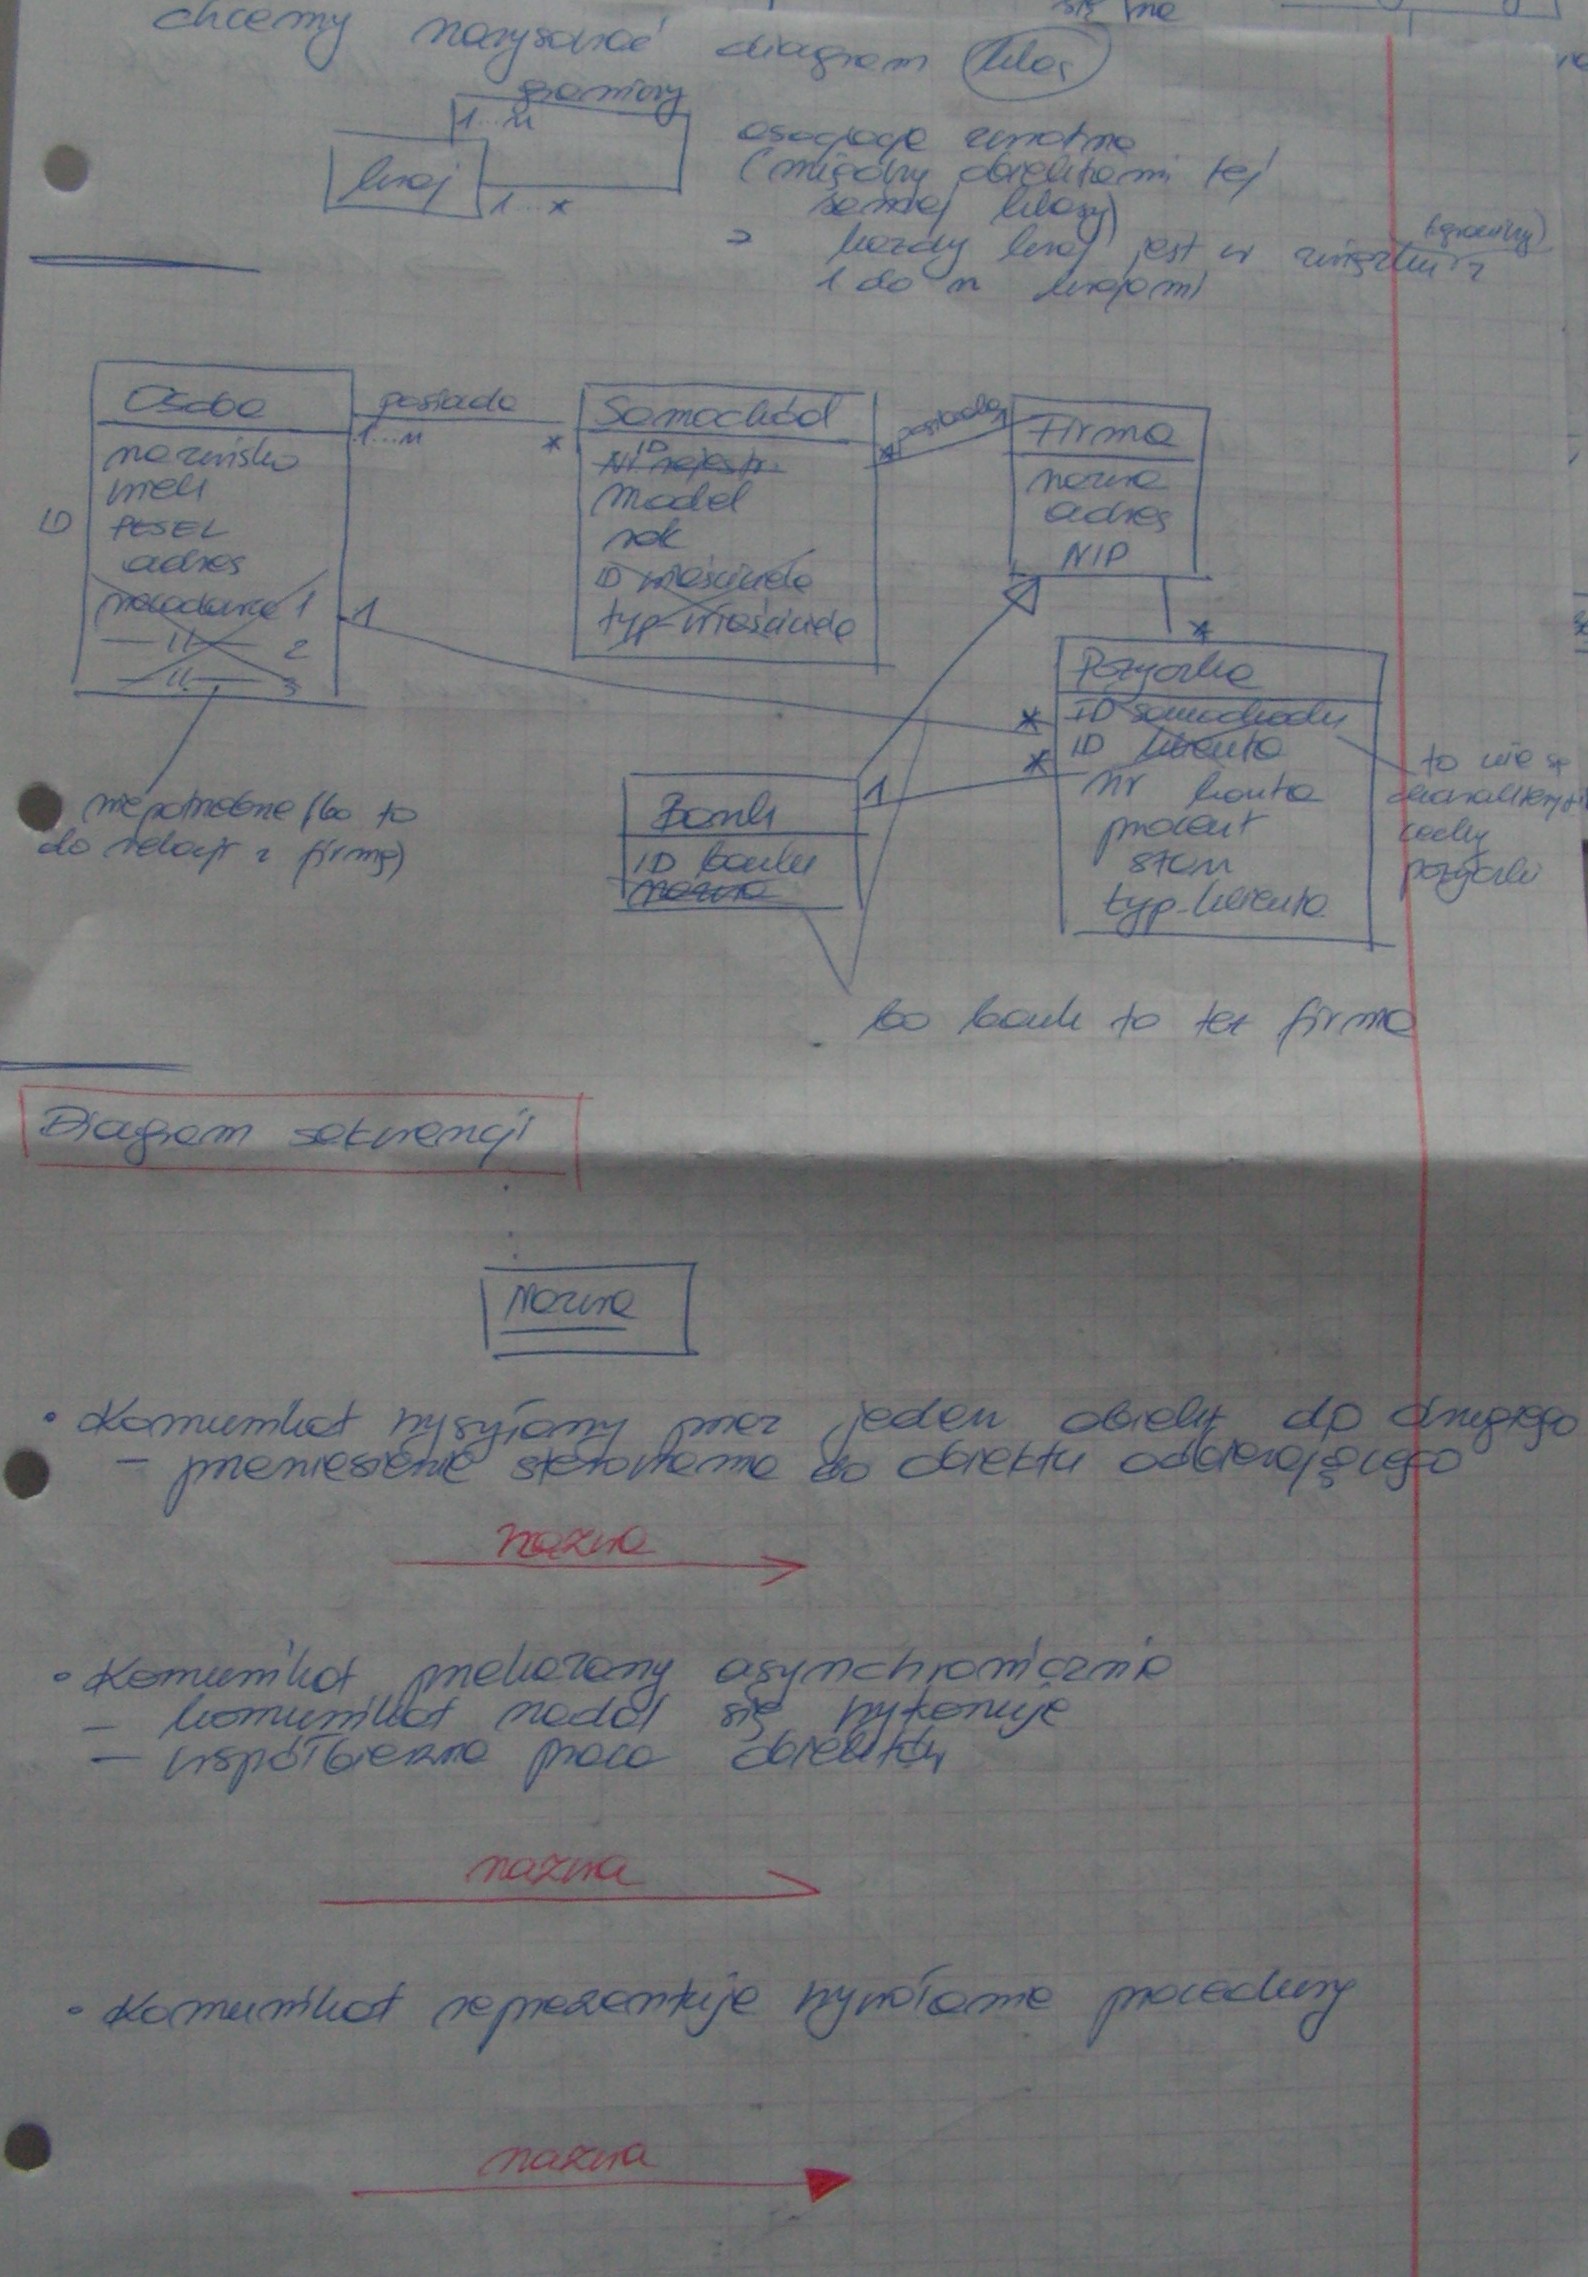 się na
chcemy narysować diagram klas
graniczy
1...n
kraj
1...*
asocjacja zwrotna
(między obiektami tej
samej klasy)
każdy kraj jest w związku z
(graniczy)
1 do n krajami
Osoba
nazwisko
imię
ID PESEL
adres
pracodawca 1
—"— 2
—"— 3
posiada
1...n *
Samochód
ID
Nr rejestr.
model
rok
ID właściciela
typ-właściciela
* posiada
Firma
nazwa
adres
NIP
*
1
*
Pożyczka
ID samochodu
ID klienta
nr konta
procent
stan
typ-klienta
to nie są
cechy
pożyczki
niepotrzebne (bo to
do relacji z firmą)
Bank
ID banku
nazwa
1 *
bo bank to też firma
Diagram sekwencji
Nazwa
• Komunikat wysyłany przez jeden obiekt do drugiego
– przeniesienie sterowania do obiektu odbierającego
nazwa
• Komunikat przekazany asynchronicznie
– komunikat nadal się wykonuje
– współbieżna praca obiektów
nazwa
• Komunikat reprezentuje wywołanie procedury
nazwa